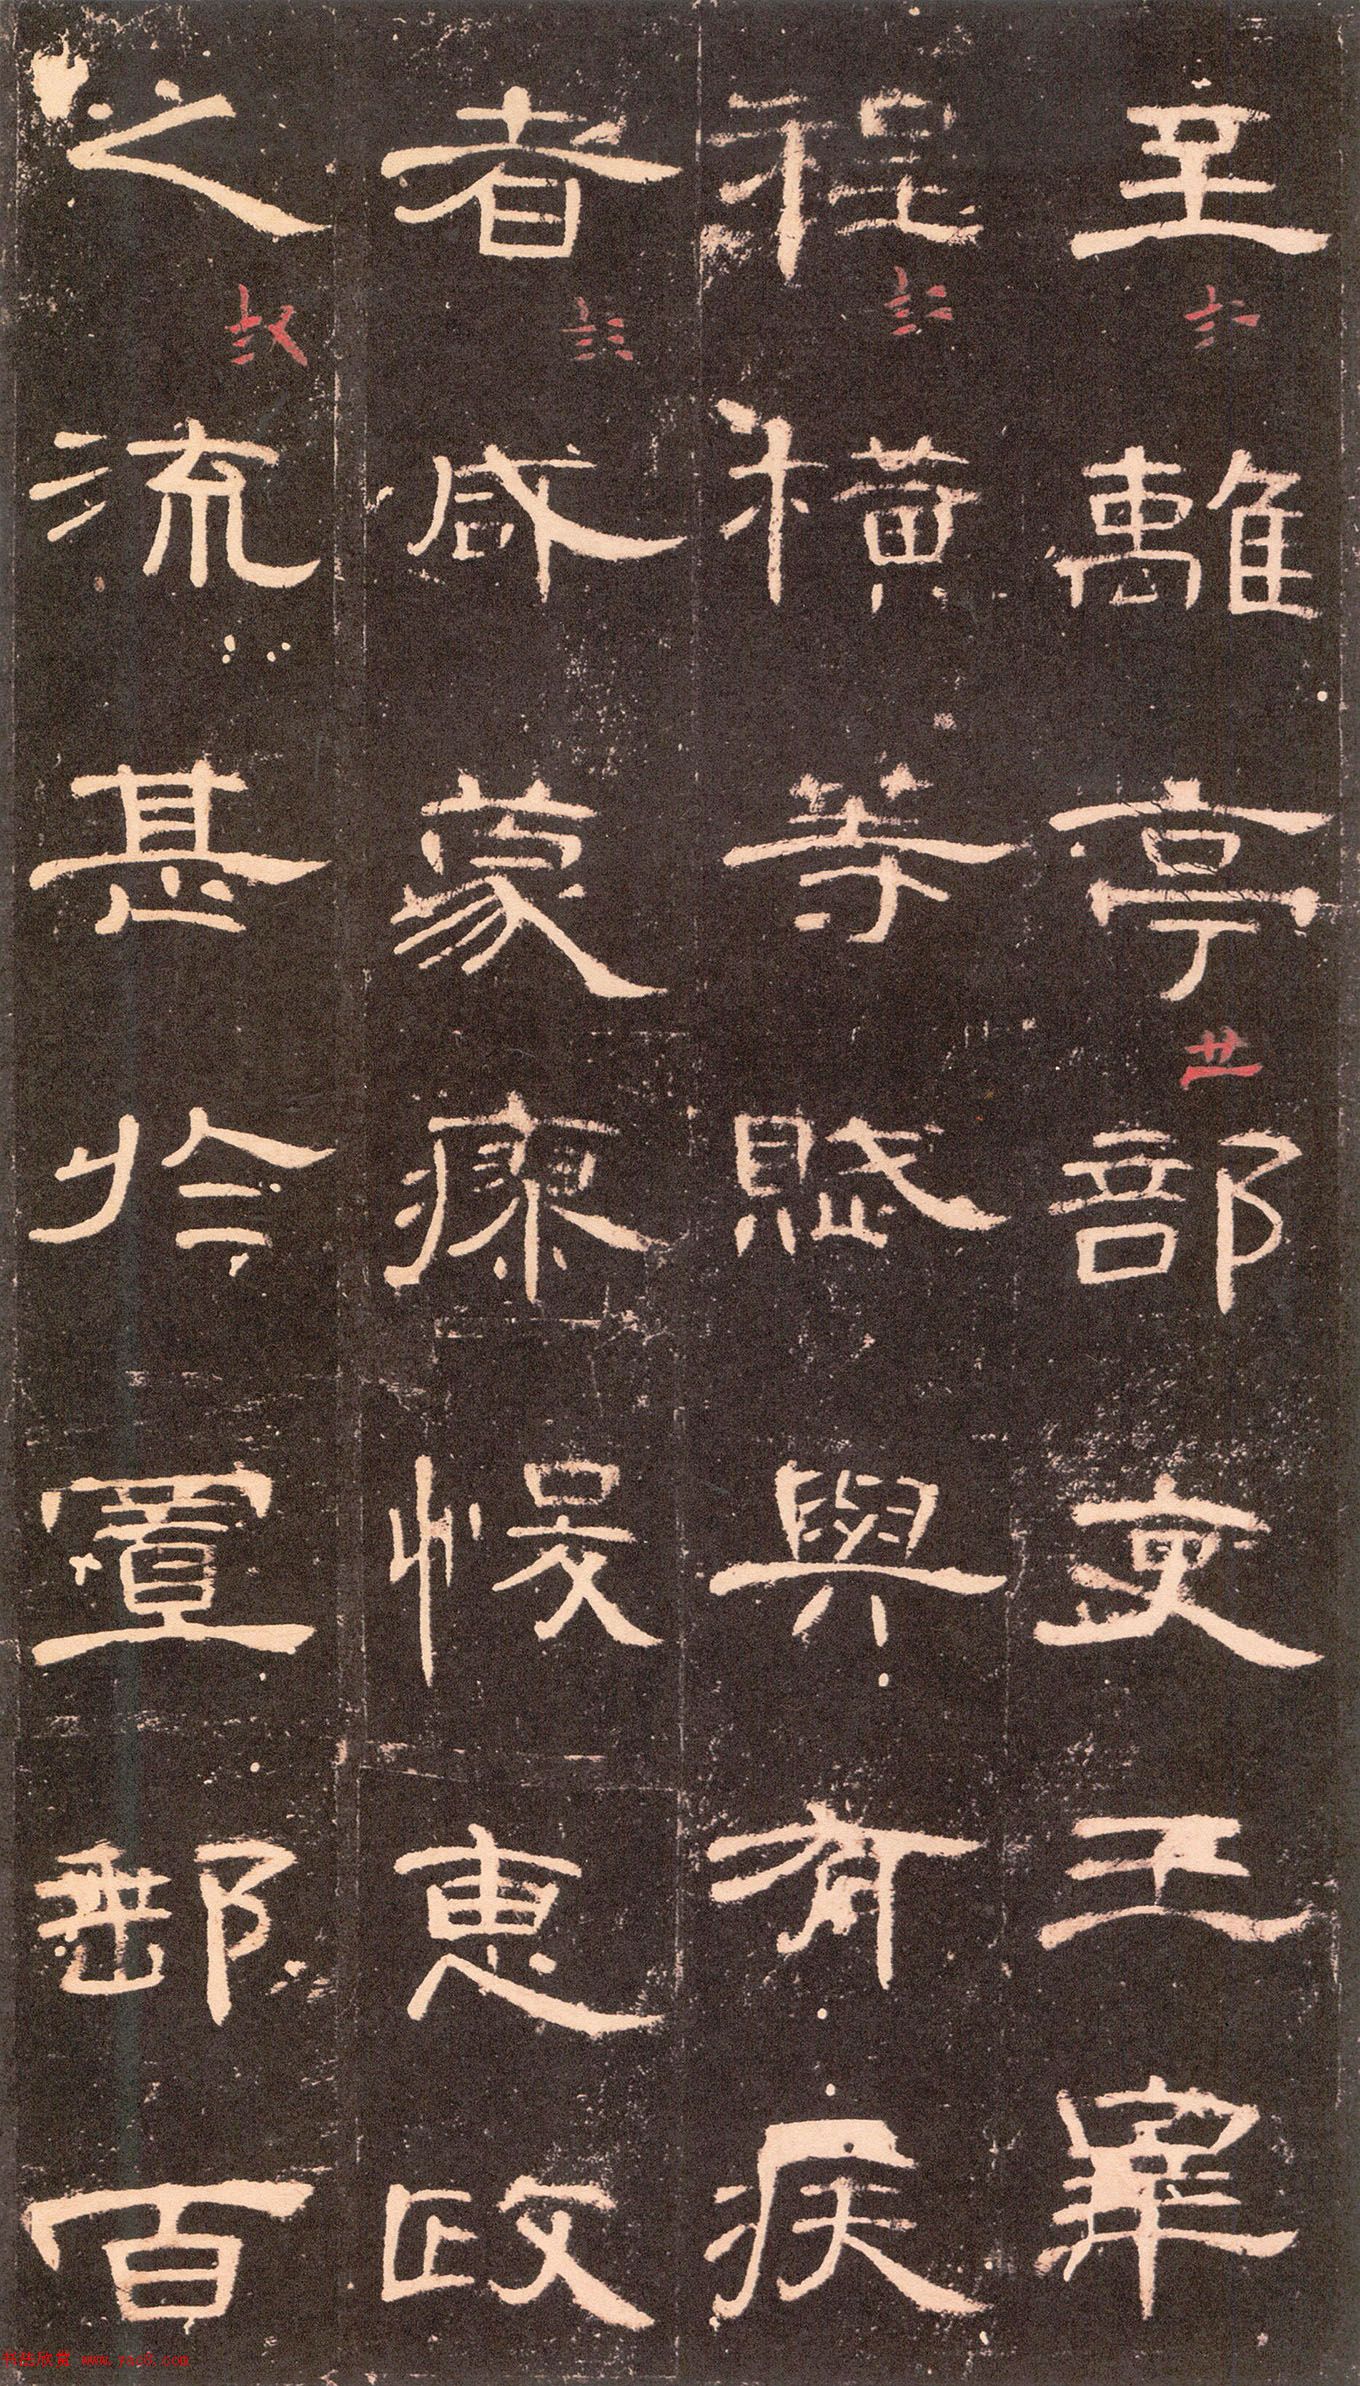 至離亭部吏王宰
程橫等賦與有疾
者咸蒙瘳悛惠政
之流甚於置郵百
书法欣赏 www.yac8.com